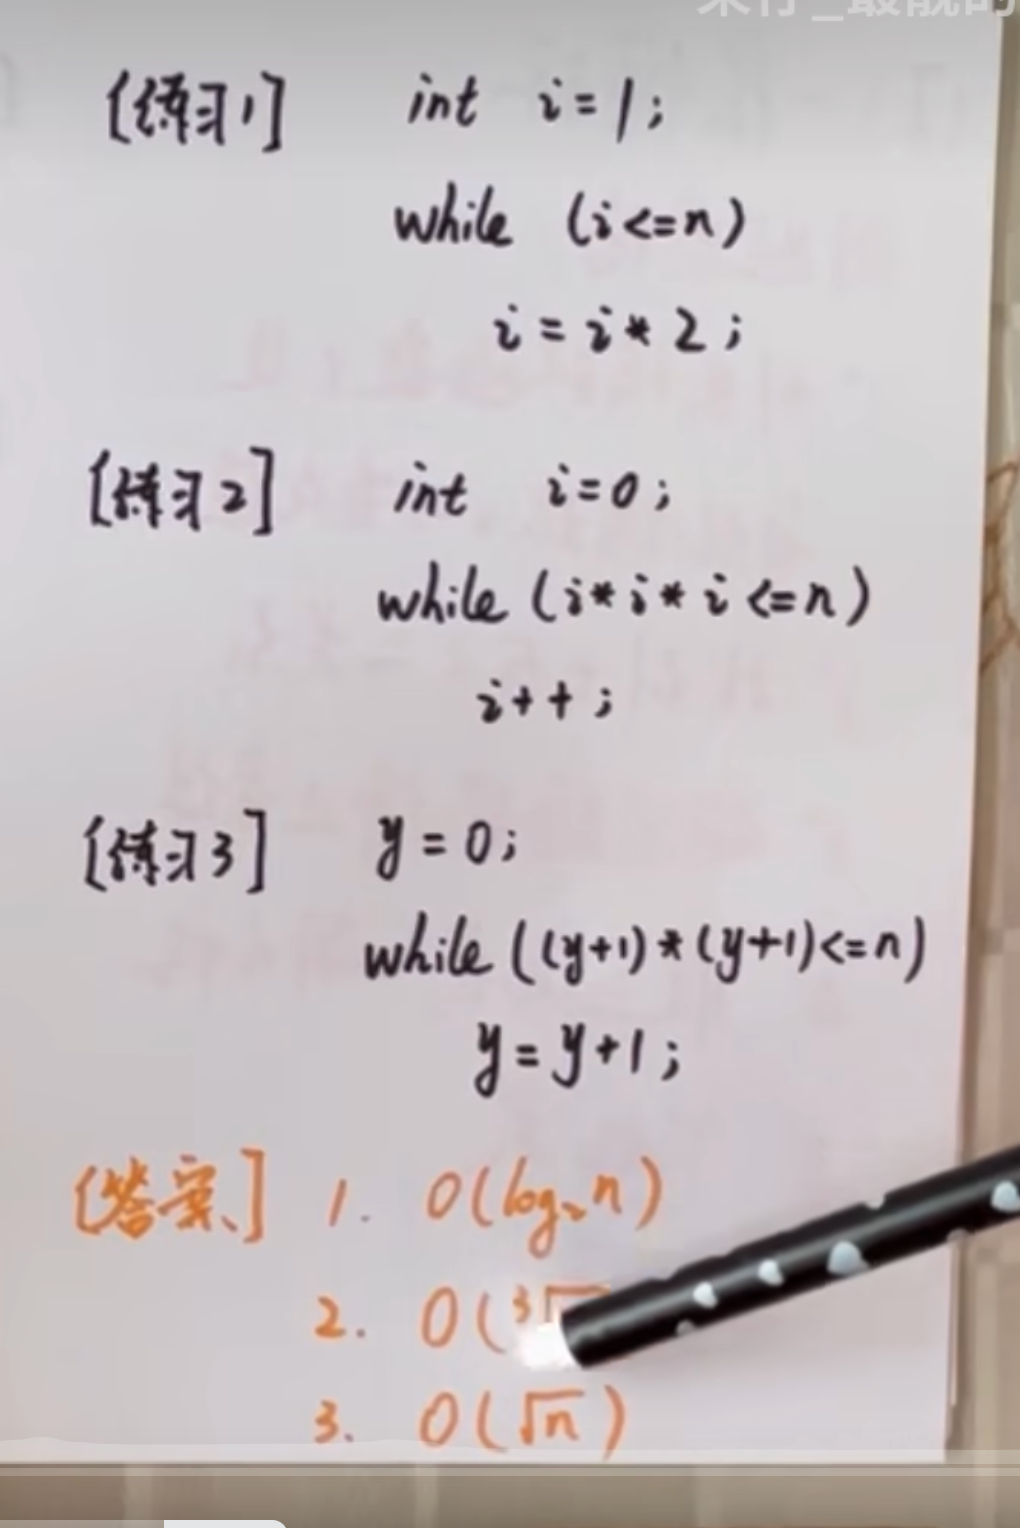 [练习1] int i=1;
while (i<=n)
i = i * 2;
[练习2] int i=0;
while (i*i*i<=n)
i++;
[练习3] y=0;
while ((y+1)*(y+1)<=n)
y=y+1;
[答案] 1. O(log₂n)
2. O(³√
3. O(√n)